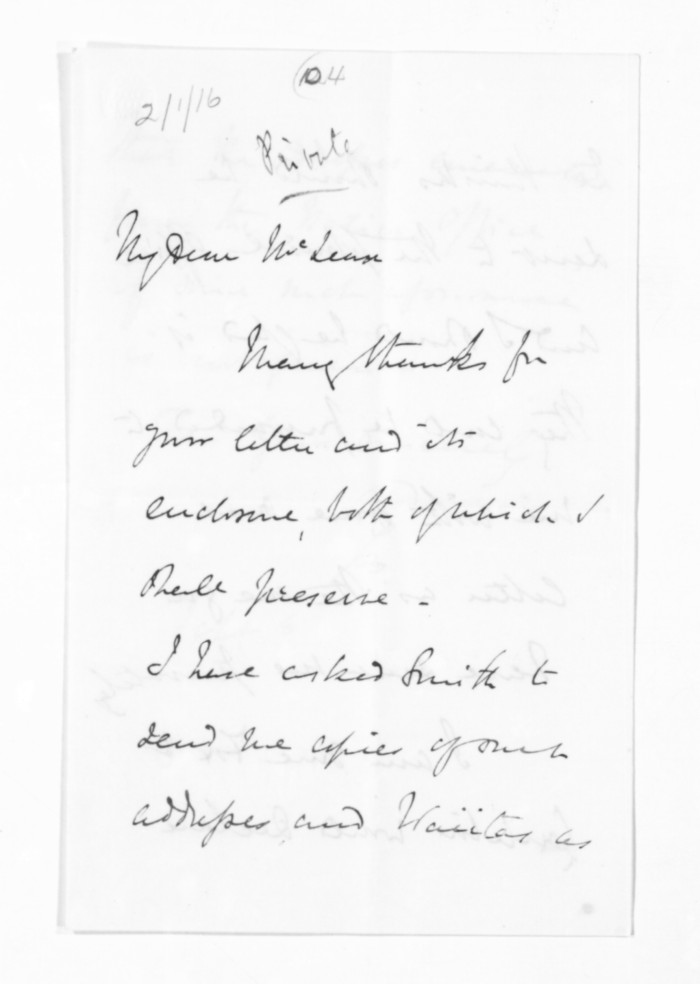 2/1/16
104
Private
My Dear McLean
Many thanks for
your letter and its
enclosure, both of which I
shall preserve -
I have asked Smith to
send me copies of such
addresses and Waiatas as